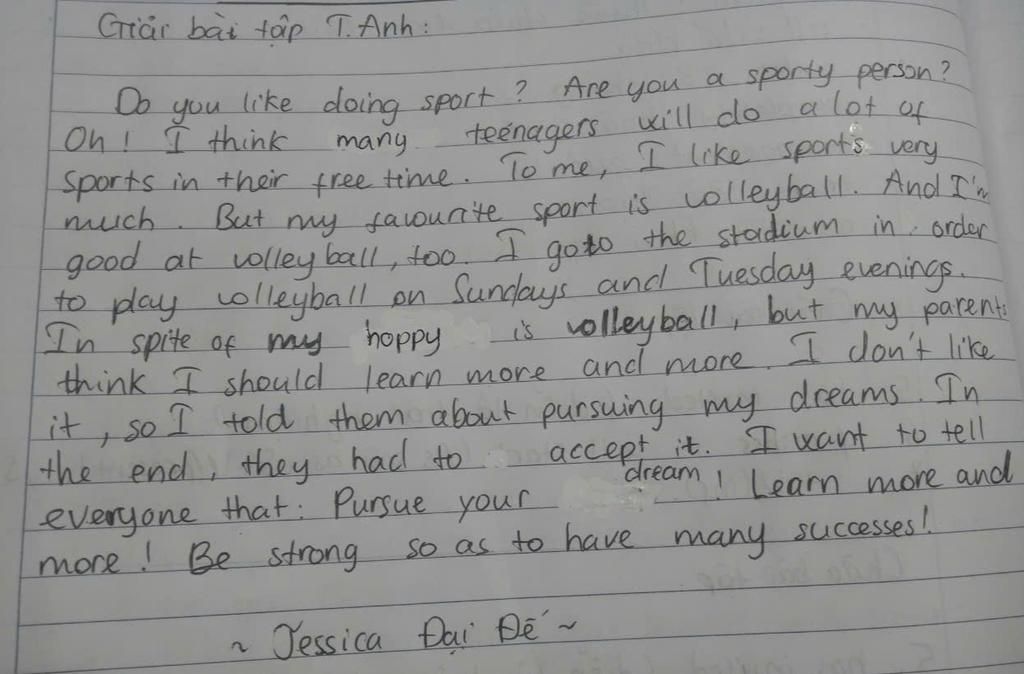 Giải bài tập T.Anh:
Do you like doing sport? Are you a sporty person?
Oh! I think many teenagers will do a lot of
sports in their free time. To me, I like sports very
much. But my favourite sport is volleyball. And I'm
good at volleyball, too. I go to the stadium in order
to play volleyball on Sundays and Tuesday evenings.
In spite of my hoppy is volleyball, but my parents
think I should learn more and more. I don't like
it, so I told them about pursuing my dreams. In
the end, they had to accept it. I want to tell
everyone that: Pursue your dream! Learn more and
more! Be strong so as to have many successes!
~ Jessica Đại Đế ~